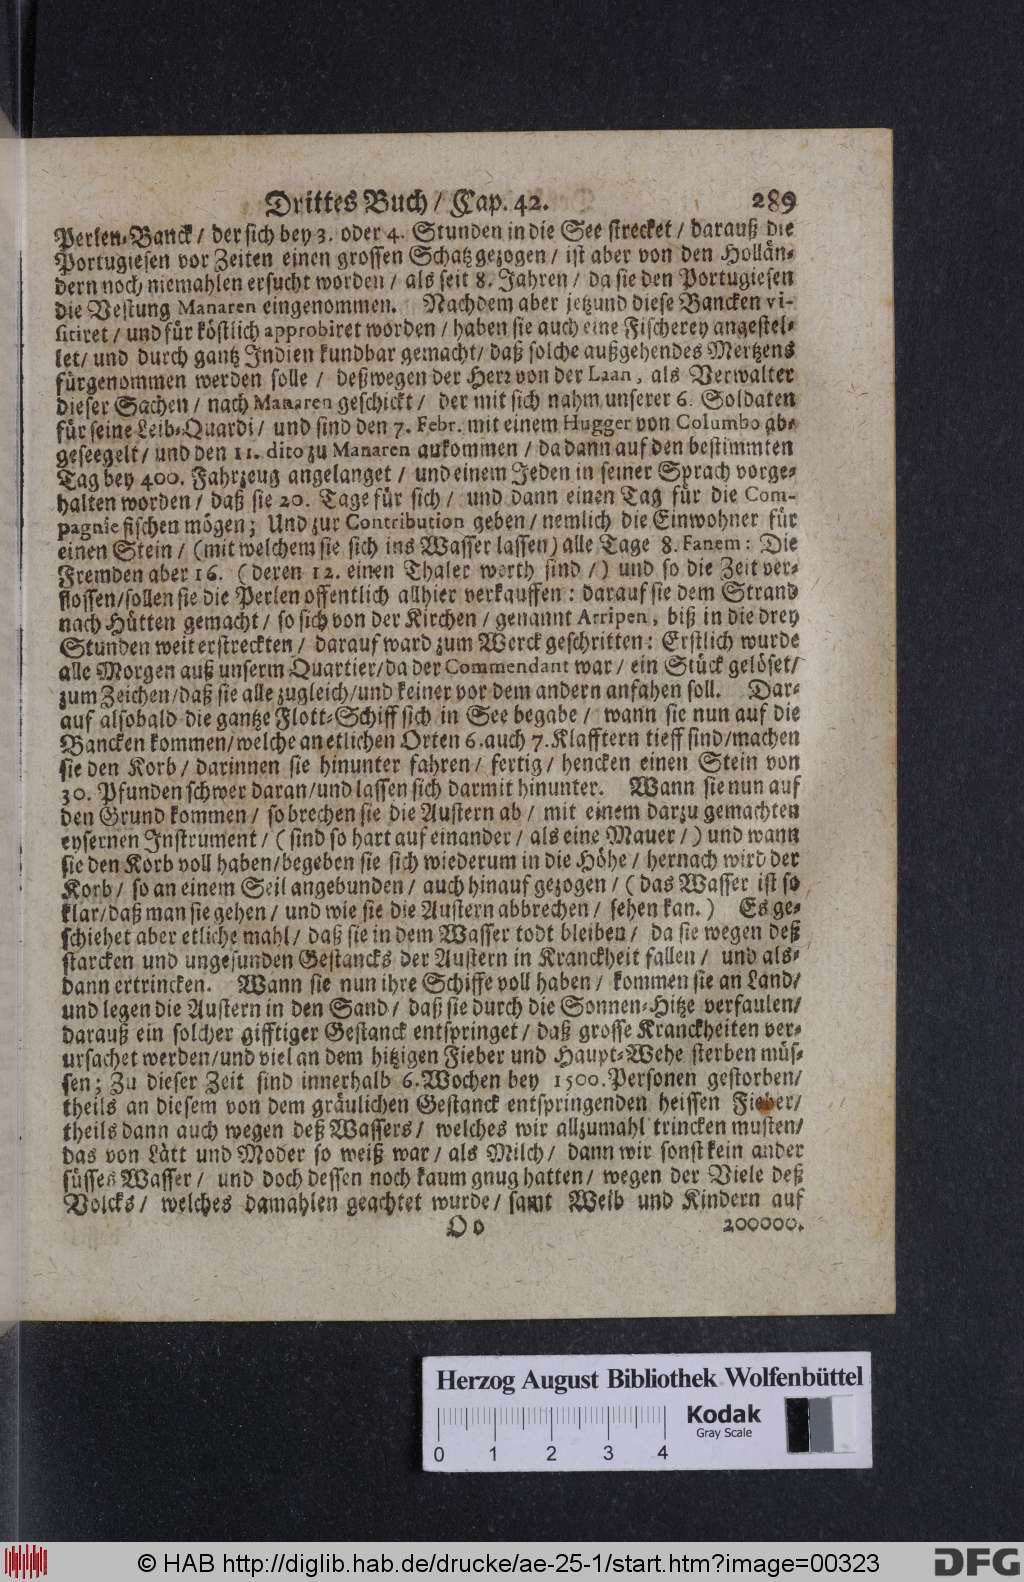 Drittes Buch / Cap. 42. 289
Perlen-Banck / der sich bey 3. oder 4. Stunden in die See strecket / darauß die
Portugiesen vor Zeiten einen grossen Schatz gezogen / ist aber von den Hollän-
dern noch niemahlen ersucht worden / als seit 8. Jahren / da sie den Portugiesen
die Vestung Manaren eingenommen. Nachdem aber jetzund diese Bancken vi-
sitiret / und für köstlich approbiret worden / haben sie auch eine Fischerey angestel-
let / und durch gantz Indien kundbar gemacht / daß solche außgehendes Mertzens
fürgenommen werden solle / deßwegen der Herr von der Laan, als Verwalter
dieser Sachen / nach Manaren geschickt / der mit sich nahm unserer 6. Soldaten
für seine Leib-Quardi / und sind den 7. Febr. mit einem Hugger von Columbo ab-
geseegelt / und den 11. dito zu Manaren aukommen / da dann auf den bestimmten
Tag bey 400. Fahrzeug angelanget / und einem Jeden in seiner Sprach vorge-
halten worden / daß sie 20. Tage für sich / und dann einen Tag für die Com-
pagnie fischen mögen; Und zur Contribution geben / nemlich die Einwohner für
einen Stein / (mit welchem sie sich ins Wasser lassen) alle Tage 8. Fanem: Die
Fremden aber 16. (deren 12. einen Thaler werth sind /) und so die Zeit ver-
flossen / sollen sie die Perlen offentlich allhier verkauffen: darauf sie dem Strand
nach Hütten gemacht / so sich von der Kirchen / genannt Arripen, biß in die drey
Stunden weit erstreckten / darauf ward zum Werck geschritten: Erstlich wurde
alle Morgen auß unserm Quartier / da der Commendant war / ein Stück gelöset /
zum Zeichen / daß sie alle zugleich / und keiner vor dem andern anfahen soll. Dar-
auf alsobald die gantze Flott-Schiff sich in See begabe / wann sie nun auf die
Bancken kommen / welche an etlichen Orten 6. auch 7. Klafftern tieff sind / machen
sie den Korb / darinnen sie hinunter fahren / fertig / hencken einen Stein von
30. Pfunden schwer daran / und lassen sich darmit hinunter. Wann sie nun auf
den Grund kommen / so brechen sie die Austern ab / mit einem darzu gemachten
eysernen Instrument / (sind so hart auf einander / als eine Mauer /) und wann
sie den Korb voll haben / begeben sie sich wiederum in die Höhe / hernach wird der
Korb / so an einem Seil angebunden / auch hinauf gezogen / (das Wasser ist so
klar / daß man sie gehen / und wie sie die Austern abbrechen / sehen kan.) Es ge-
schiehet aber etliche mahl / daß sie in dem Wasser todt bleiben / da sie wegen deß
starcken und ungesunden Gestancks der Austern in Kranckheit fallen / und als-
dann ertrincken. Wann sie nun ihre Schiffe voll haben / kommen sie an Land /
und legen die Austern in den Sand / daß sie durch die Sonnen-Hitze verfaulen /
darauß ein solcher gifftiger Gestanck entspringet / daß grosse Kranckheiten ver-
ursachet werden / und viel an dem hitzigen Fieber und Haupt-Wehe sterben müs-
sen; Zu dieser Zeit sind innerhalb 6. Wochen bey 1500. Personen gestorben /
theils an diesem von dem gräulichen Gestanck entspringenden heissen Fieber /
theils dann auch wegen deß Wassers / welches wir allzumahl trincken musten /
das von Lätt und Moder so weiß war / als Milch / dann wir sonst kein ander
süsses Wasser / und doch dessen noch kaum gnug hatten / wegen der Viele deß
Volcks / welches damahlen geachtet wurde / samt Weib und Kindern auf
Oo 200000.
Herzog August Bibliothek Wolfenbüttel
Kodak
Gray Scale
0 1 2 3 4
© HAB http://diglib.hab.de/drucke/ae-25-1/start.htm?image=00323
DFG